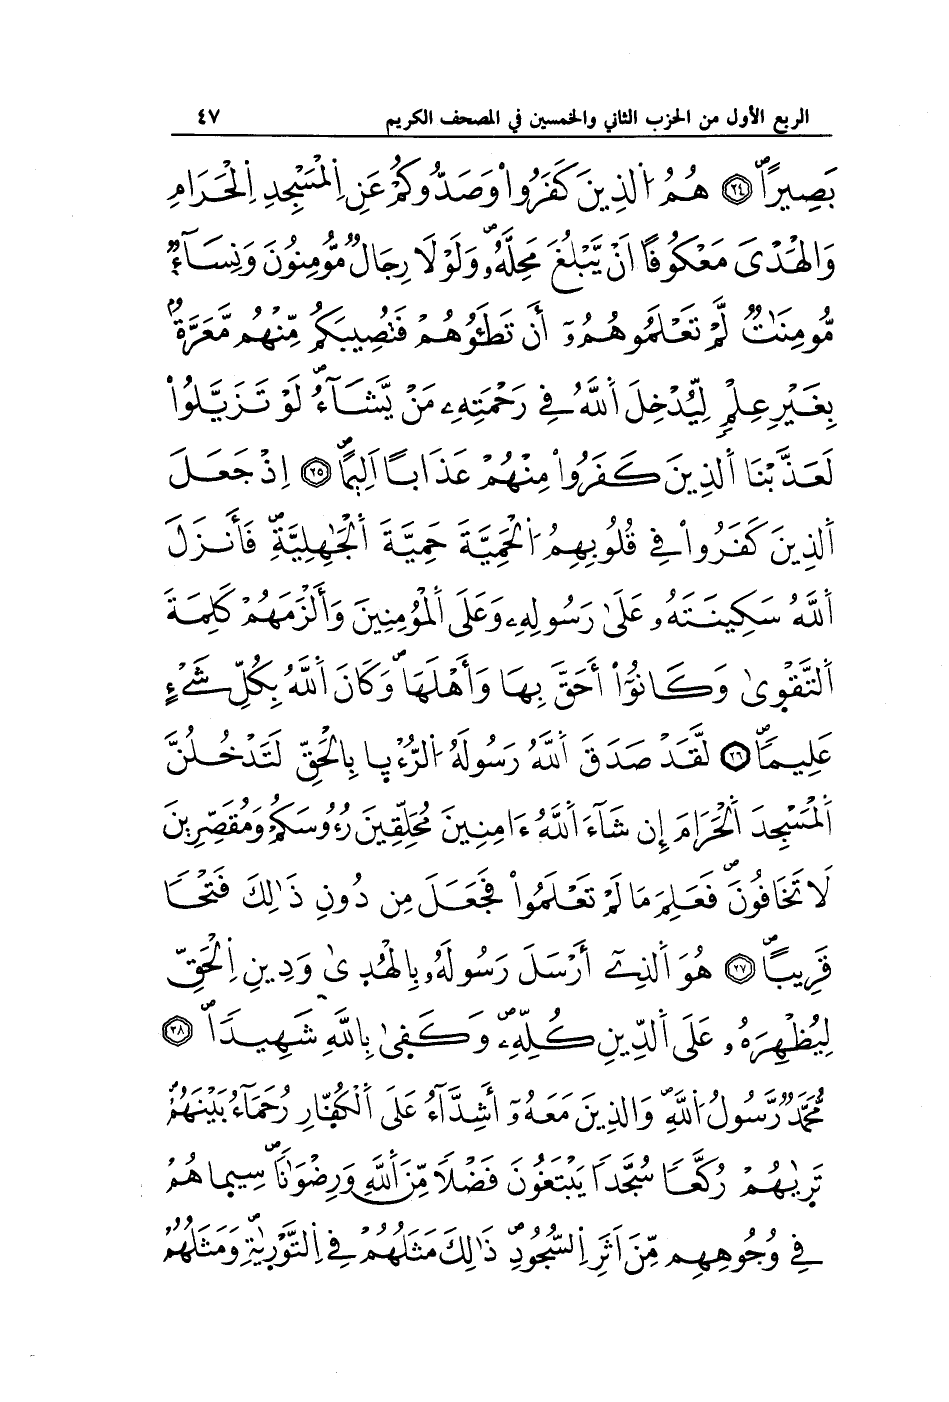 الربع الأول من الحزب الثاني والخمسين في المصحف الكريم ٤٧
بَصِيراًۖ ٢٤ هُمُ اُ۬لذِينَ كَفَرُواْ وَصَدُّوكُمْ عَنِ اِ۬لْمَسْجِدِ اِ۬لْحَرَامِ
وَالْهَدْيَ مَعْكُوفاً اَنْ يَّبْلُغَ مَحِلَّهُۥۖ وَلَوْلَا رِجَالٌ مُّومِنُونَ وَنِسَآءٌ
مُّومِنَٰتٌ لَّمْ تَعْلَمُوهُمُۥٓ أَن تَطَـُٔوهُمْ فَتُصِيبَكُم مِّنْهُم مَّعَرَّةُۢ
بِغَيْرِ عِلْمٍ لِّيُدْخِلَ اَ۬للَّهُ فِي رَحْمَتِهِۦ مَنْ يَّشَآءُۖ لَوْ تَزَيَّلُواْ
لَعَذَّبْنَا اَ۬لذِينَ كَفَرُواْ مِنْهُمْ عَذَاباً اَلِيماًۖ ٢٥ اِذْ جَعَلَ
اَ۬لذِينَ كَفَرُواْ فِي قُلُوبِهِمُ اُ۬لْحَمِيَّةَ حَمِيَّةَ اَ۬لْجَٰهِلِيَّةِۖ فَأَنزَلَ
اَ۬للَّهُ سَكِينَتَهُۥ عَلَىٰ رَسُولِهِۦ وَعَلَى اَ۬لْمُؤْمِنِينَ وَأَلْزَمَهُمْ كَلِمَةَ
اَ۬لتَّقْوٜىٰ وَكَانُوٓاْ أَحَقَّ بِهَا وَأَهْلَهَاۖ وَكَانَ اَ۬للَّهُ بِكُلِّ شَےْءٍ
عَلِيماًۖ ٢٦ لَّقَدْ صَدَقَ اَ۬للَّهُ رَسُولَهُ اُ۬لرُّءْيٜا بِالْحَقِّ لَتَدْخُلُنَّ
اَ۬لْمَسْجِدَ اَ۬لْحَرَامَ إِن شَآءَ اَ۬للَّهُ ءَامِنِينَ مُحَلِّقِينَ رُءُوسَكُمْ وَمُقَصِّرِينَ
لَا تَخَافُونَۖ فَعَلِمَ مَا لَمْ تَعْلَمُواْ فَجَعَلَ مِن دُونِ ذَٰلِكَ فَتْحاً
قَرِيباًۖ ٢٧ هُوَ اَ۬لذِےٓ أَرْسَلَ رَسُولَهُۥ بِالْهُدٜىٰ وَدِينِ اِ۬لْحَقِّ
لِيُظْهِرَهُۥ عَلَى اَ۬لدِّينِ كُلِّهِۦۖ وَكَفٜىٰ بِاللَّهِ شَهِيداًۖ ٢٨
مُّحَمَّدٌ رَّسُولُ اُ۬للَّهِۖ وَالذِينَ مَعَهُۥٓ أَشِدَّآءُ عَلَى اَ۬لْكُفّٜارِ رُحَمَآءُ بَيْنَهُمْ
تَرٜىٰهُمْ رُكَّعاً سُجَّداً يَبْتَغُونَ فَضْلاً مِّنَ اَ۬للَّهِ وَرِضْوَٰناًۖ سِيمٜاهُمْ
فِي وُجُوهِهِم مِّنَ اَثَرِ اِ۬لسُّجُودِۖ ذَٰلِكَ مَثَلُهُمْ فِي اِ۬لتَّوْرٜىٰةِۖ وَمَثَلُهُمْ